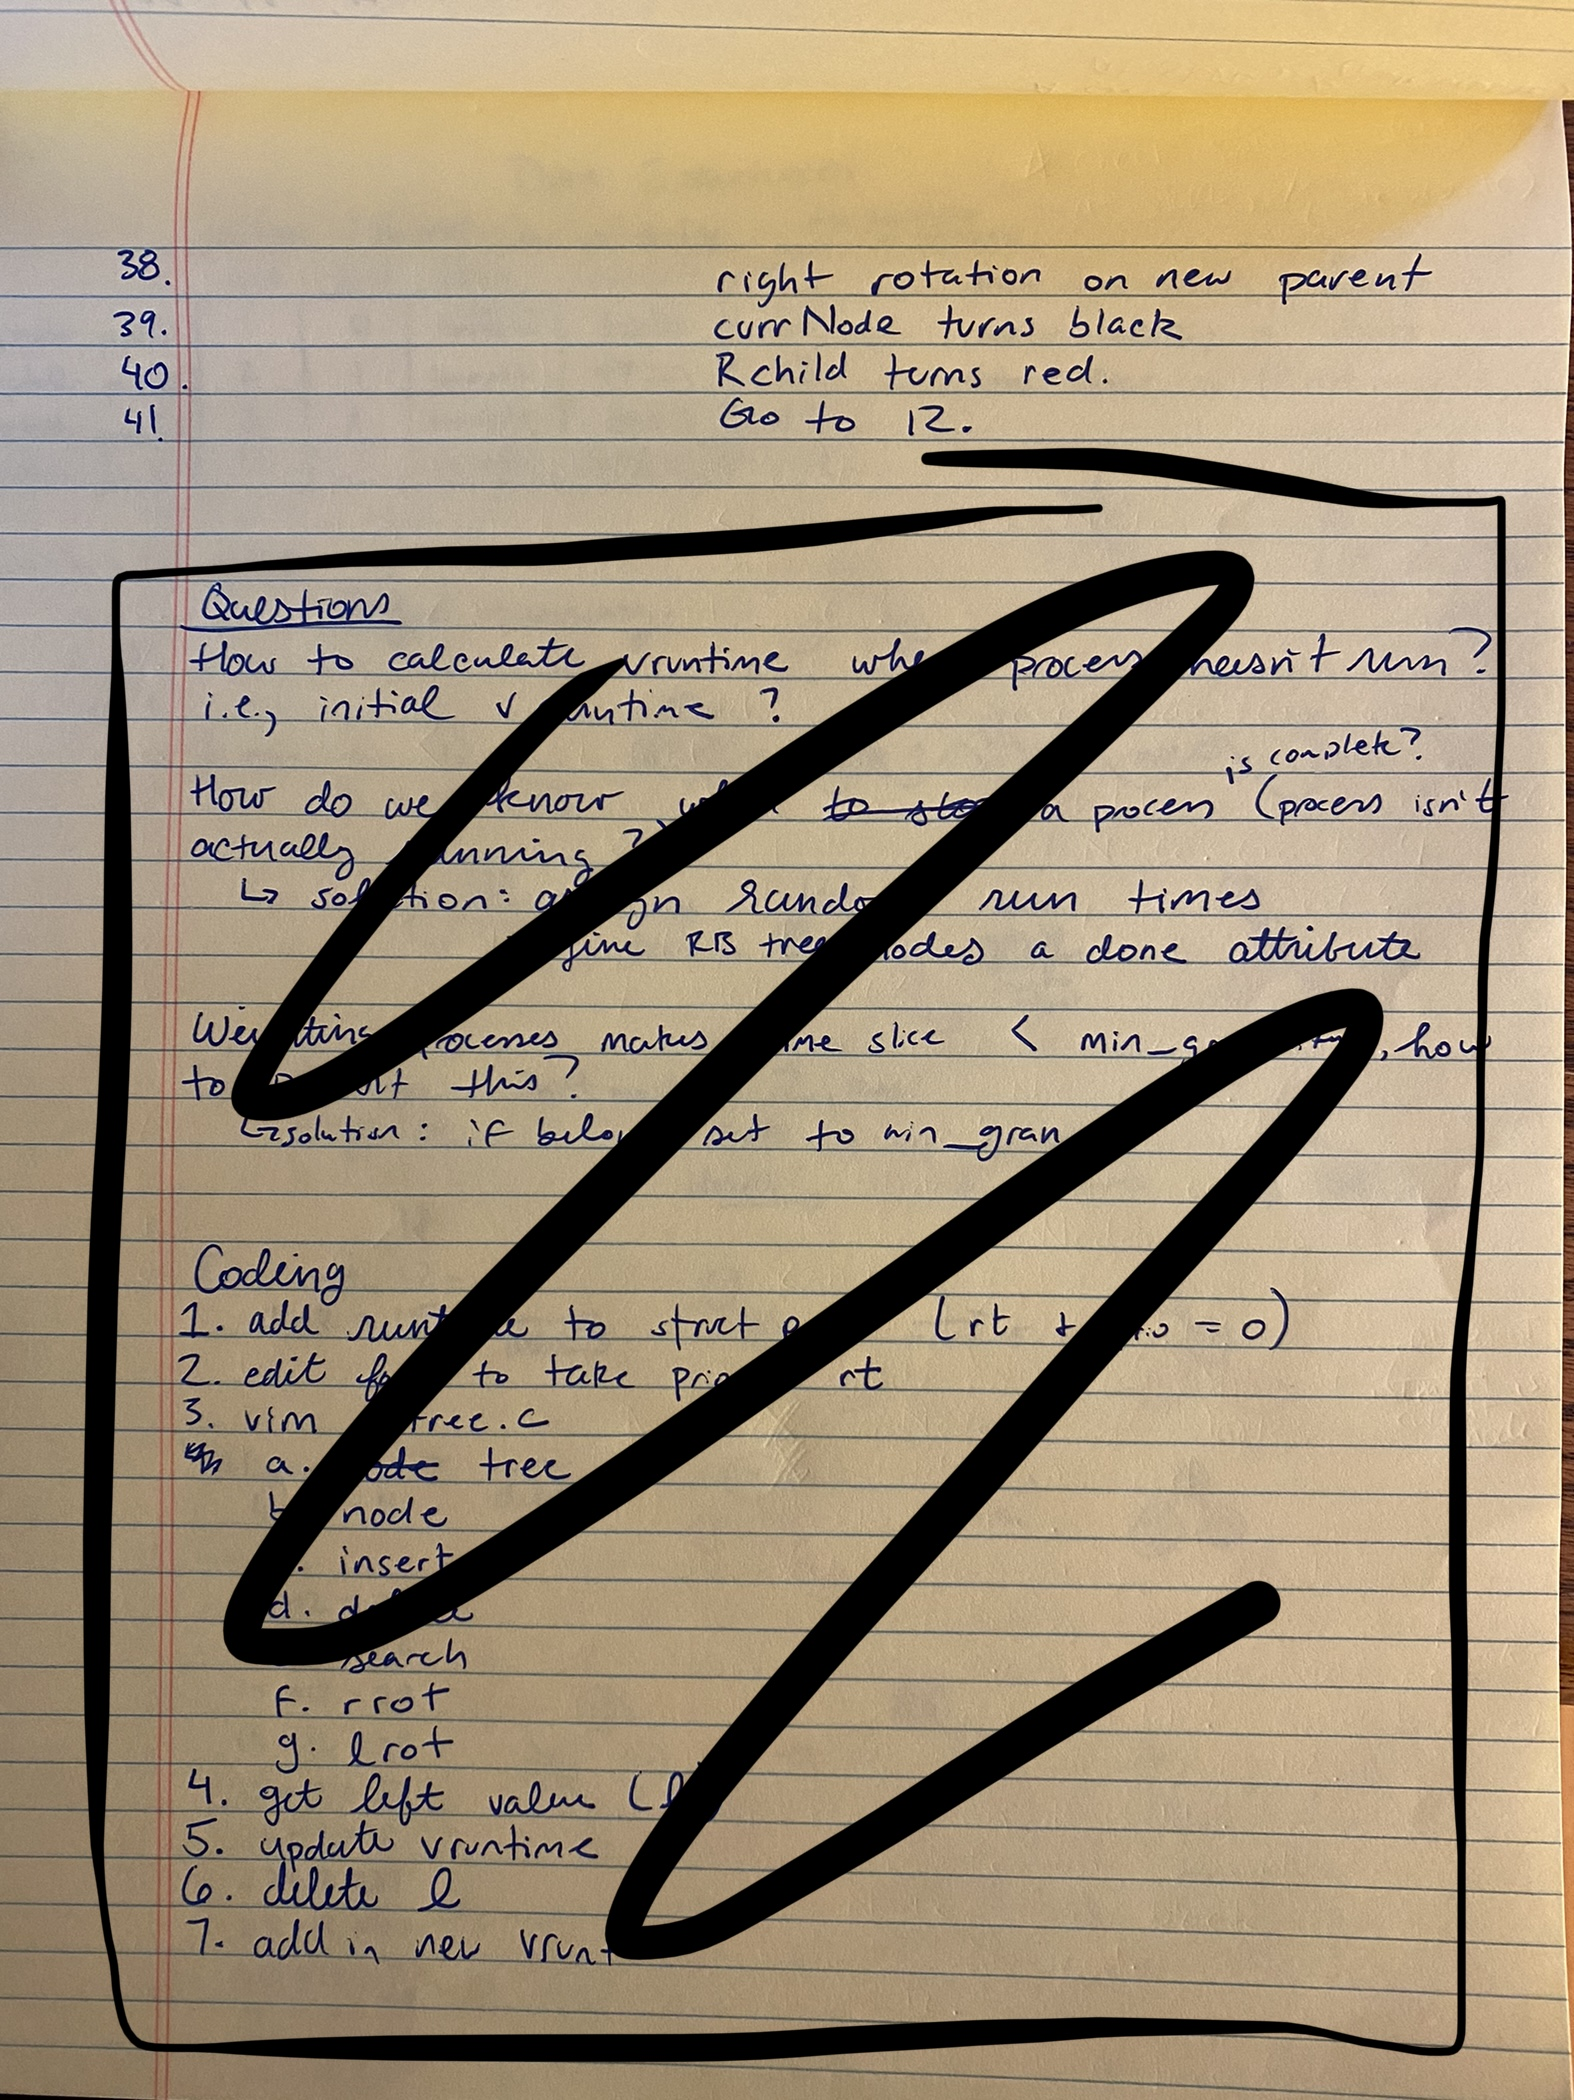 38. right rotation on new parent
39. currNode turns black
40. Rchild turns red.
41. Go to 12.
Questions
How to calculate vruntime process doesn't run?
i.e., initial vruntime ?
is complete?
How do we know to a process (process isn't
actually running?)
↳ solution: assign random run times
RB tree nodes a done attribute
processes makes time slice < , how
to this?
↳ solution: if below set to min_gran
Coding
1. add runtime to struct (rt = 0)
2. edit to take rt
3. vim tree.c
a. node tree
b. node
insert
d. delete
search
f. rrot
g. lrot
4. get left value (l)
5. update vruntime
6. delete l
7. add in new